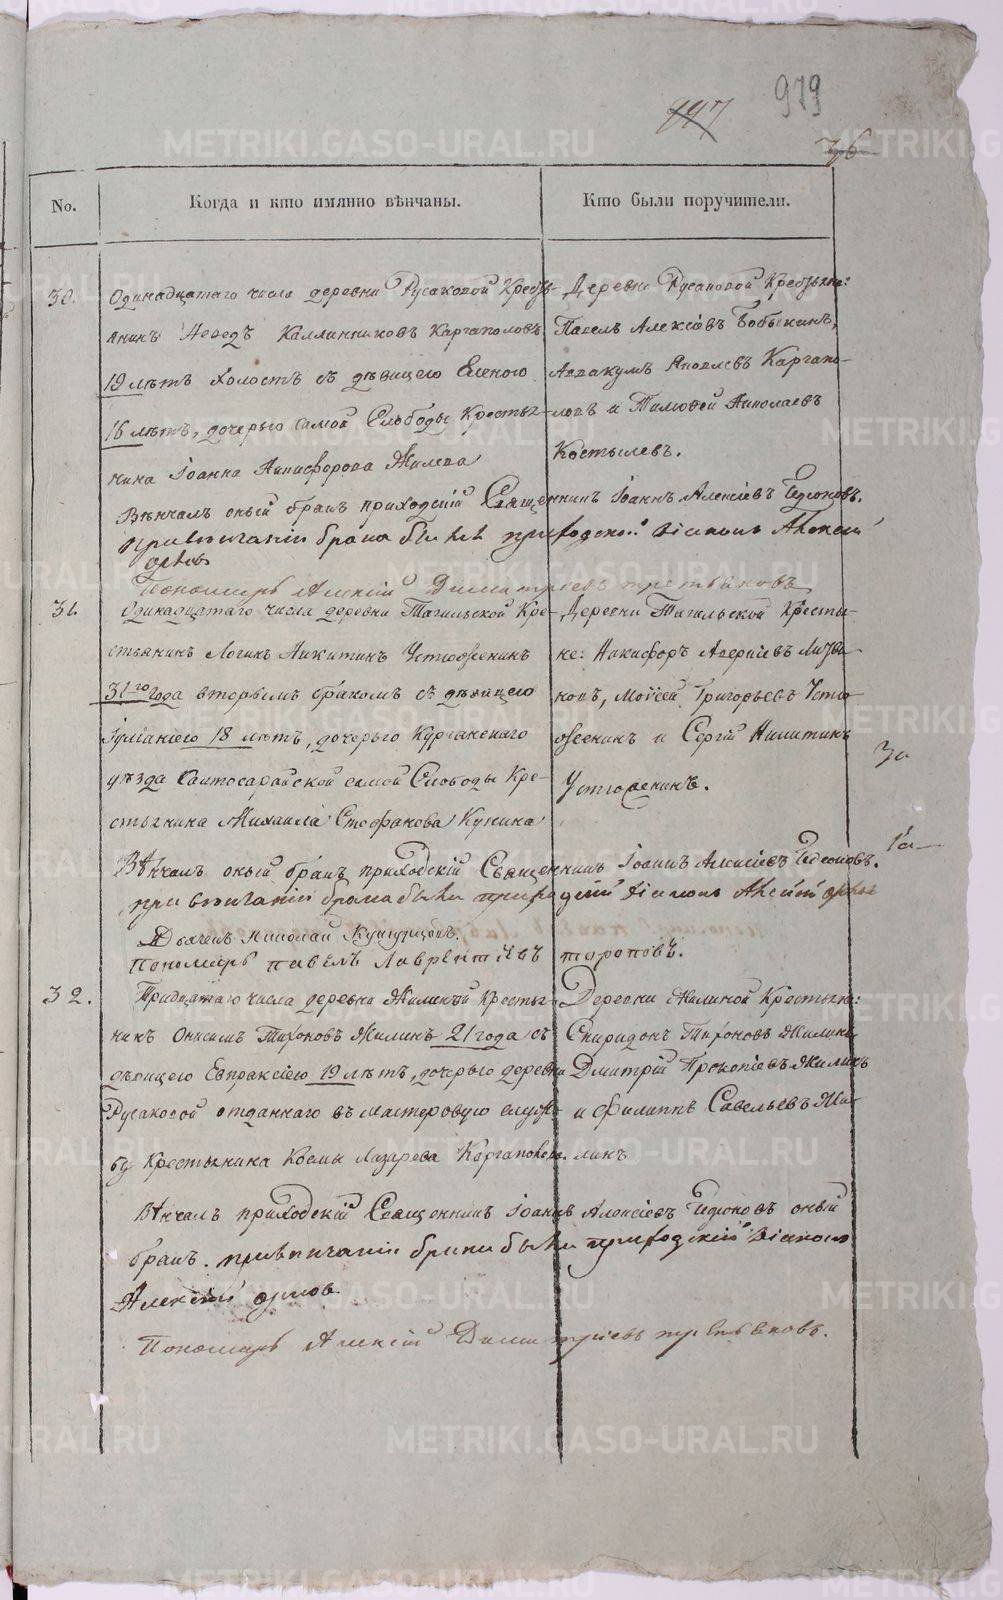 979
997
36
No.
Когда и кто имянно вѣнчаны.
Кто были поручители.
30.
Одинадцатаго числа деревни Русаковой Кресть-
янинъ Каллинниковъ Каргаполовъ
19 лѣтъ холостъ съ дѣвицею Еленою
16 лѣтъ, дочерью самой Слободы Крестья-
нина Іоанна Никифорова Жилева
Деревни Русаковой Крестьяне:
Павелъ Алексіевъ Бобыкинъ,
Аввакумъ Яковлевъ Каргапо-
ловъ и Тимофей Николаевъ
Костылевъ.
Вѣнчалъ оный бракъ приходскій Священникъ Іоаннъ Алексіевъ
при вѣнчаніи брака были приходской діаконъ Алексій
орловъ
Пономарь Алексій Димитріевъ третьяковъ
31.
Одинадцатаго числа деревни Тагильской Кре-
стьянинъ Логинъ Никитинъ Устюженинъ
31-го года вторымъ бракомъ съ дѣвицею
Іуліаніею 18 лѣтъ, дочерью Курганскаго
уѣзда Салтосарайской самой Слободы Кре-
стьянина Михаила Стефанова Кунина
Деревни Тагильской Крестья-
не: Никифоръ Аверкіевъ
ковъ, Моѵсей Григорьевъ Устю-
женинъ и Сергій Никитинъ
Устюженинъ.
Вѣнчалъ оный бракъ приходскій Священникъ Іоаннъ Алексіевъ
при вѣнчаніи брака были приходскій діаконъ Алексій орловъ
Дьячекъ Николай
Пономарь павелъ Лаврентіевъ тороповъ.
32.
Тридцатаго числа деревни Жилиной Крестья-
нинъ Онисимъ Тихоновъ Жилинъ 21 года съ
дѣвицею Евпраксіею 19 лѣтъ, дочерью деревни
Русаковой отданнаго въ мастеровую служ-
бу Крестьянина Космы Лазарева Каргаполова.
Деревни Жилиной Крестьяне:
Спиридонъ Тихоновъ Жилинъ
Дмитрій Прокопіевъ Жилинъ
и Филиппъ Савельевъ Жи-
линъ
Вѣнчалъ приходскій Священникъ Іоаннъ Алексіевъ оный
бракъ. при вѣнчаніи брака были приходскій діаконъ
Алексій орловъ
Пономарь Алексій Димитріевъ третьяковъ.
METRIKI.GASO-URAL.RU